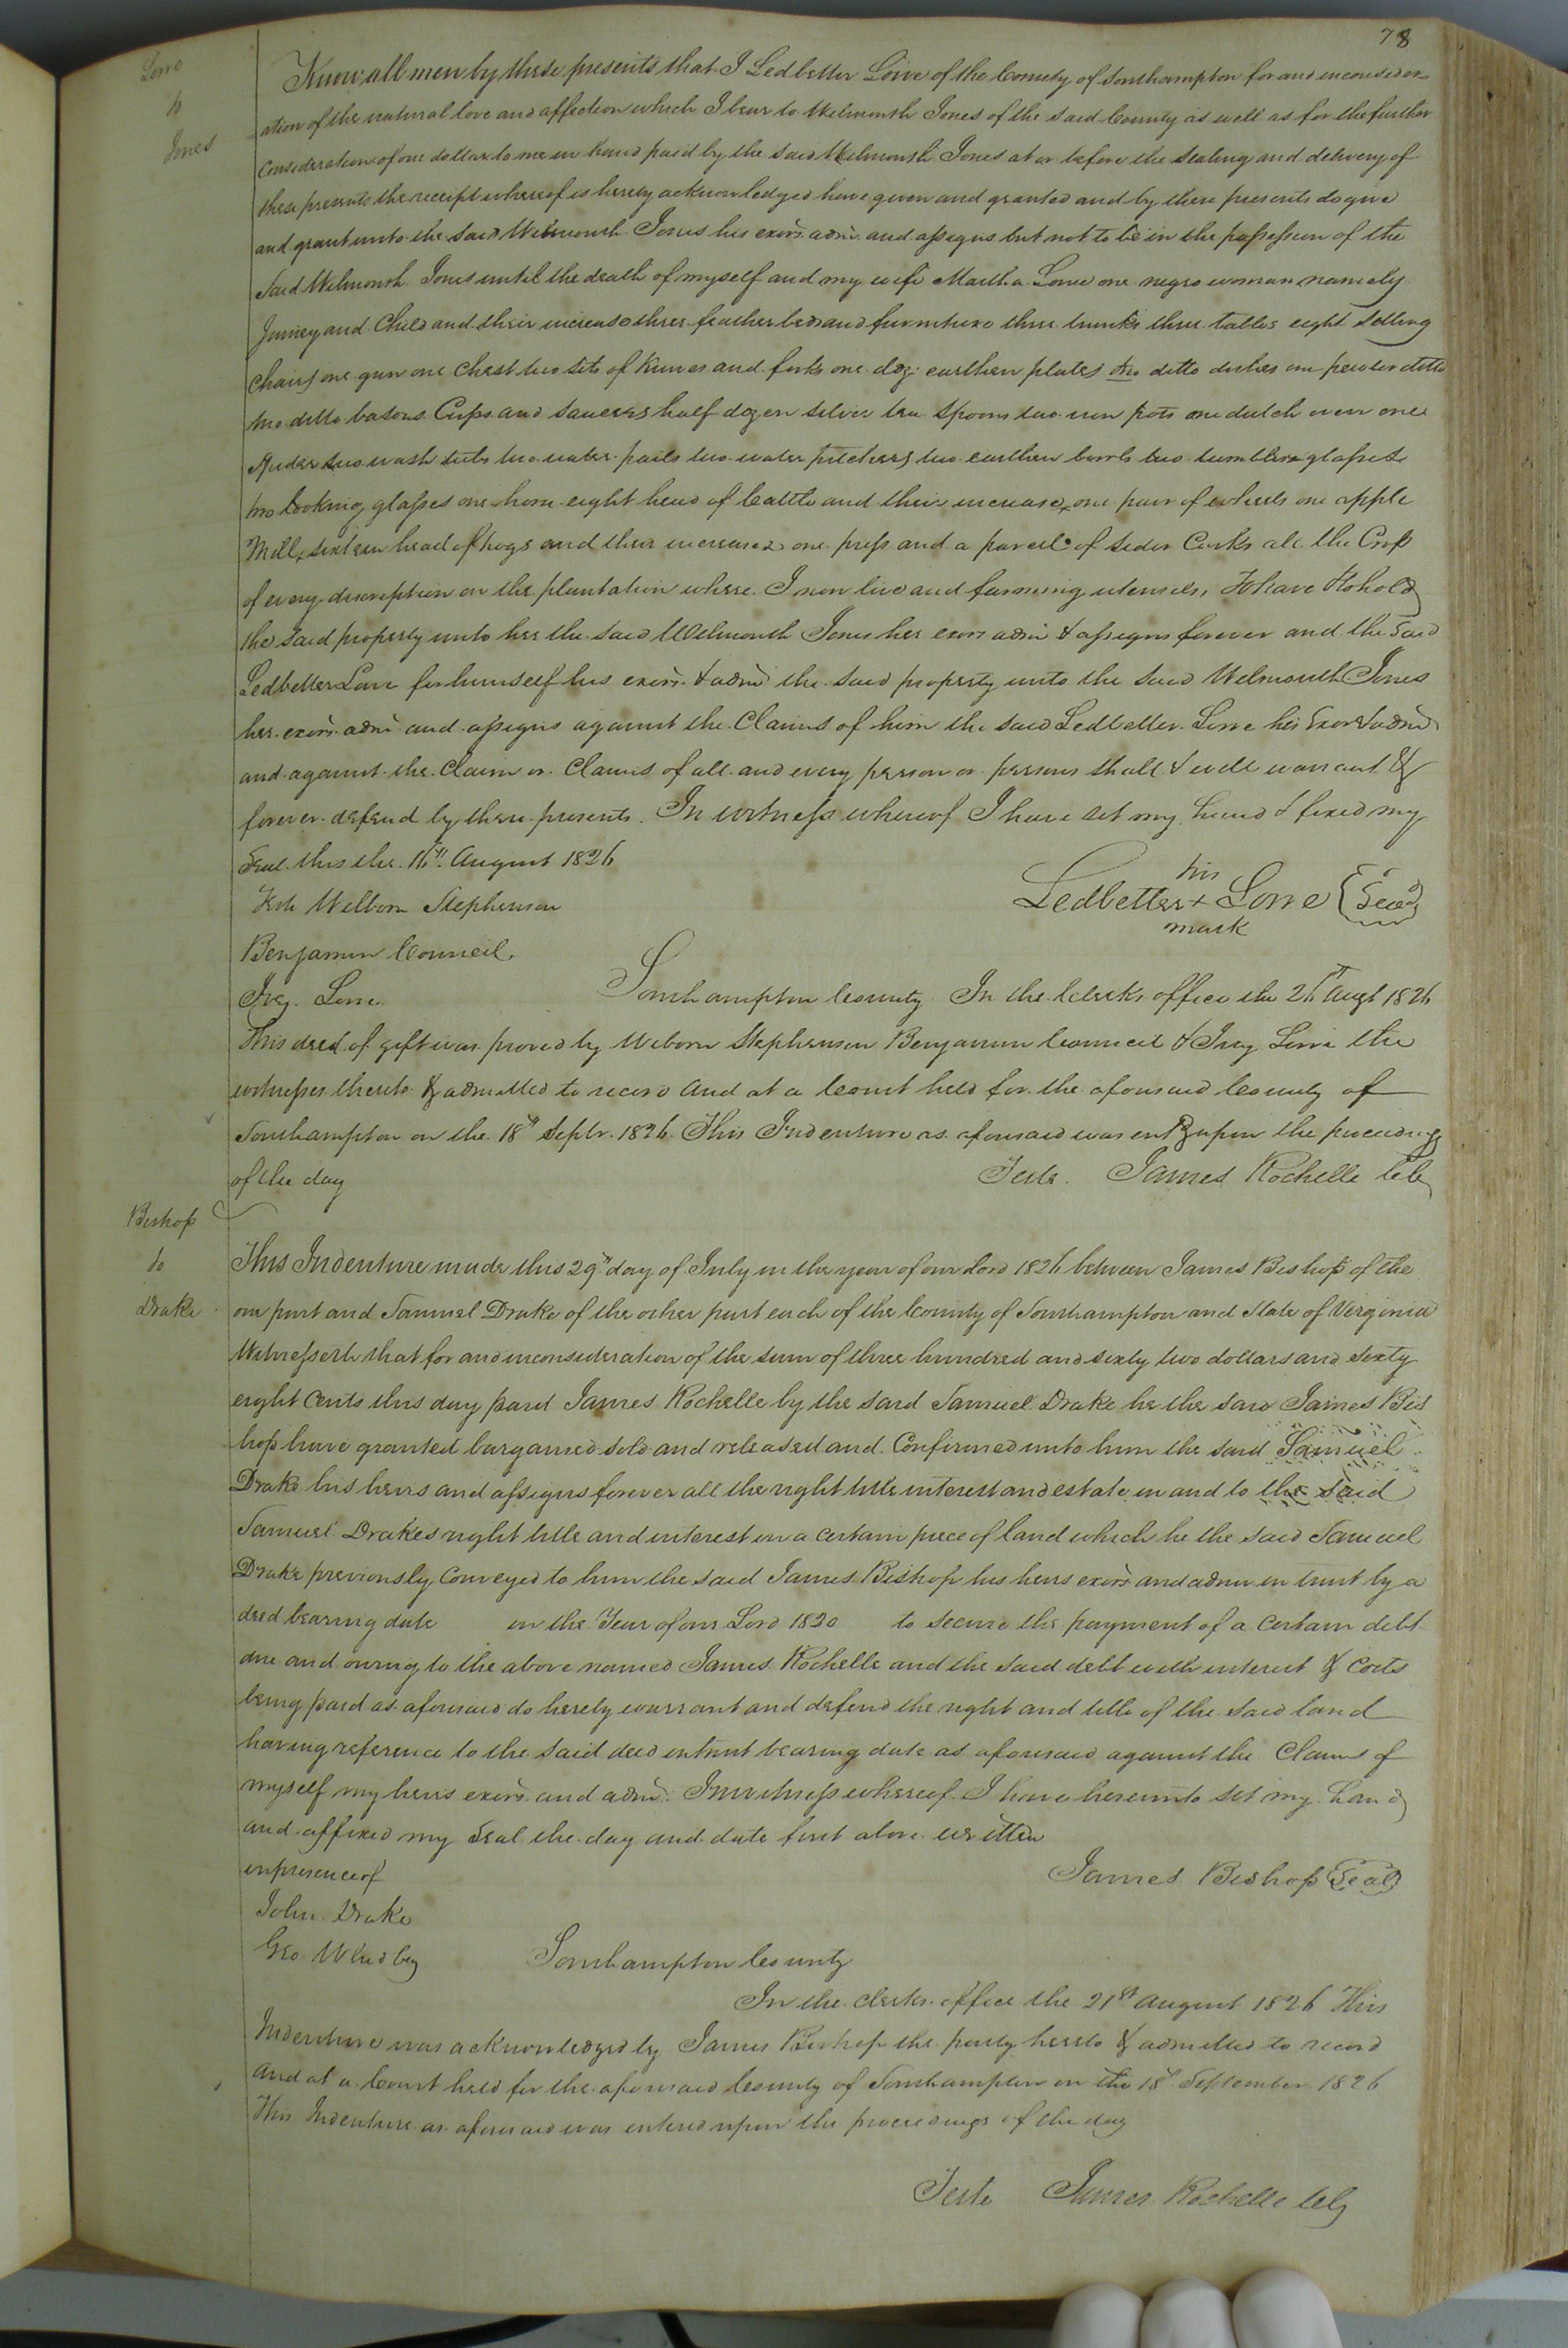 78
Lowe
to
Jones
Know all men by these presents that I Ledbetter Lowe of the County of Southampton for and in consider-
ation of the natural love and affection which I bear to Wilmouth Jones of the said County as well as for the further
consideration of one dollar to me in hand paid by the said Wilmouth Jones at or before the sealing and delivery of
these presents the receipt whereof is hereby acknowledged have given and granted and by these presents do give
and grant unto the said Wilmouth Jones his exors. adm. and assigns but not to be in the possession of the
said Wilmouth Jones until the death of myself and my wife Martha Lowe one negro woman namely
and Child and their increase three feather beds and furniture three trunks three tables eight setting
chairs one gun one Chest two sets of knives and forks one doz. earthen plates two ditto dishes one pewter ditto
two ditto basons Cups and saucers half dozen silver tea spoons two iron pots one dutch oven one
spider two wash tubs two water pails two water pitchers two earthen bowls two tumblers glasses
two looking glasses one horse eight head of Cattle and their increase, one pair of wheels one apple
Mill, sixteen head of hogs and their increase one press and a parcel of sider Casks all the Crop
of every discreption on the plantation where I now live and farming utensils, To have & to hold
the said property unto her the said Wilmouth Jones her exors adm & assigns forever and the said
Ledbetter Lowe for himself his exors. & adm the said property unto the said Wilmouth Jones
her exors. adm. and assigns against the Claims of him the said Ledbetter Lowe his Exors & adm
and against the Claim or Claims of all and every person or persons shall & will warrant &
forever defend by these presents. In witness whereof I have set my hand & fixed my
Seal this the 16th. August 1826
his
Ledbetter + Lowe {Seal}
mark
Test Welborn Stephenson
Benjamin Council.
Lowe
Southampton County In the Clerks office the August 1826
This deed of gift was proved by Weborn Stephenson Benjamin Council & Lowe the
witnesses thereto & admitted to record and at a Court held for the aforesaid County of
Southampton on the 18th Septr. 1826. This Indenture as aforesaid was entd upon the proceedings
of the day
Teste. James Rochelle Clk
Bishop
to
Drake
This Indenture made this 29th day of July in the year of our Lord 1826 between James Bishop of the
one part and Samuel Drake of the other part each of the County of Southampton and State of Virginia
Witnesseth that for and in consideration of the sum of three hundred and sixty two dollars and sixty
eight Cents this day paid James Rochelle by the said Samuel Drake he the said James Bis
hop have granted bargained sold and released and Confirmed unto him the said Samuel
Drake his heirs and assigns forever all the right title interest and estate in and to the said
Samuel Drakes right title and interest in a certain piece of land which he the said Samuel
Drake previously Conveyed to him the said James Bishop his heirs exors and admn in trust by a
deed bearing date in the Year of our Lord 1820 to secure the payment of a certain debt
due and owing to the above named James Rochelle and the said debt with interest & Costs
being paid as aforesaid do hereby warrant and defend the right and title of the said land
having reference to the said deed in trust bearing date as aforesaid against the Claims of
myself my heirs exors. and adm. In witness whereof I have hereunto set my hand
and affixed my Seal the day and date first above written
in presence of
James Bishop {Seal}
John Drake
Geo Wendley
Southampton County
In the clerks office the 21st August 1826 This
Indenture was acknowledged by James Bishop the party hereto & admitted to record
and at a Court held for the aforesaid County of Southampton on the 18th September 1826
This Indenture as aforesaid was entered upon the proceedings of the day
Teste James Rochelle Clk